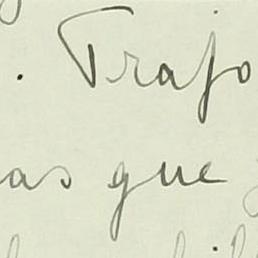 . Trajo
as que